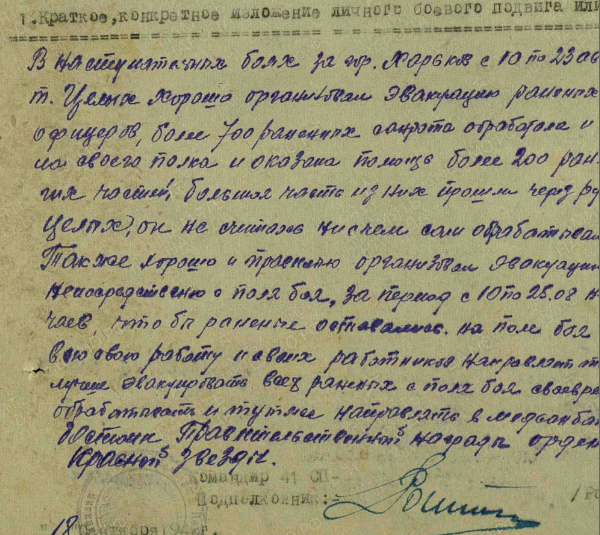 1. Краткое, конкретное изложение личного боевого подвига или
В наступательных боях за гор. Харьков с 10 по 23 ав
т. Целых хорошо организовал эвакуацию раненых
офицеров, более 700 раненных санрота обработала и
ла своего полка и оказана помощь более 200 ран
гих частей, большая часть из них прошли через ру
Целых, он не считаясь ни с чем сам обрабатывал
Также хорошо и правильно организовал эвакуацию
непосредственно с поля боя, за период с 10 по 25.08 н
чаев, что бы раненые оставались на поле боя
всю свою работу и своих работников направляет
лучше эвакуировать всех раненых с поля боя своевре
обрабатывать и тут же направлять в медсанба
Достоин Правительственной награды орден
Красной Звезды.
Командир 41 СП-
Подполковник:-
18 Сентября 194 г.